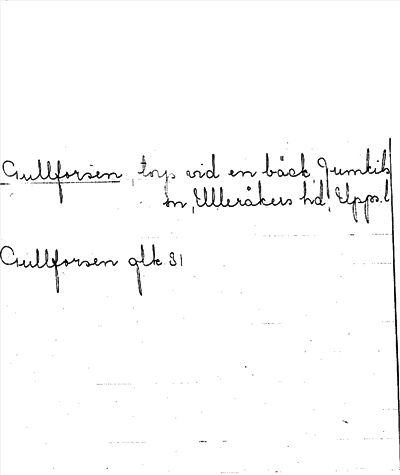 Gullforsen, torp vid en bäck, Jumkils
sn, Ulleråkers hd, Upps. l
Gullforsen glk 31